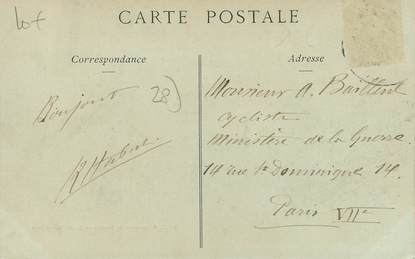 lot
CARTE POSTALE
Correspondance
Adresse
28)
Bonjour
Monsieur A.
cycliste
Ministère de la Guerre.
14 rue St Dominique 14.
Paris VIIe